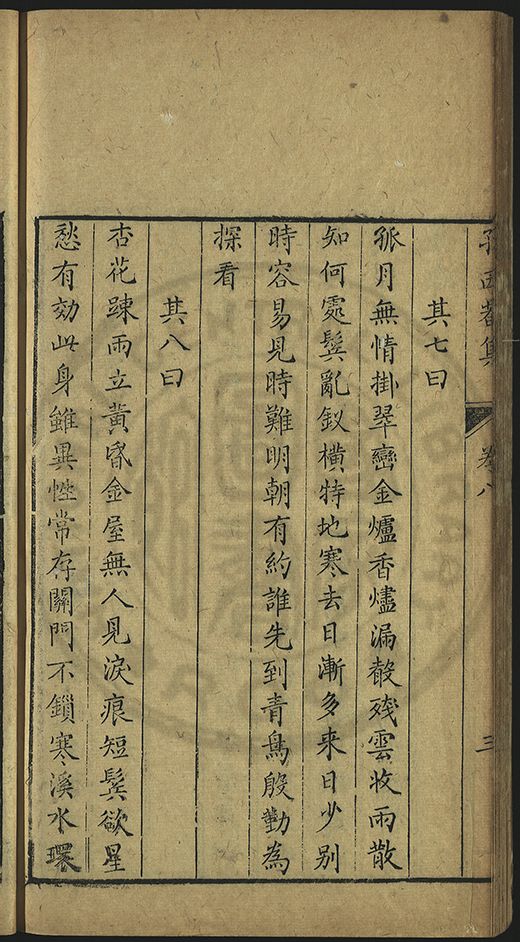 孫西菴集 卷八 三
其七曰
孤月無情掛翠巒金爐香燼漏殽殘雲收雨散
知何處鬂亂釵橫特地寒去日漸多来日少别
時容易見時難明朝有約誰先到青鳥殷勤為
探看
其八曰
杏花踈雨立黃昏金屋無人見淚痕短鬂欲星
愁有効此身雖異性常存關門不鎖寒溪水環